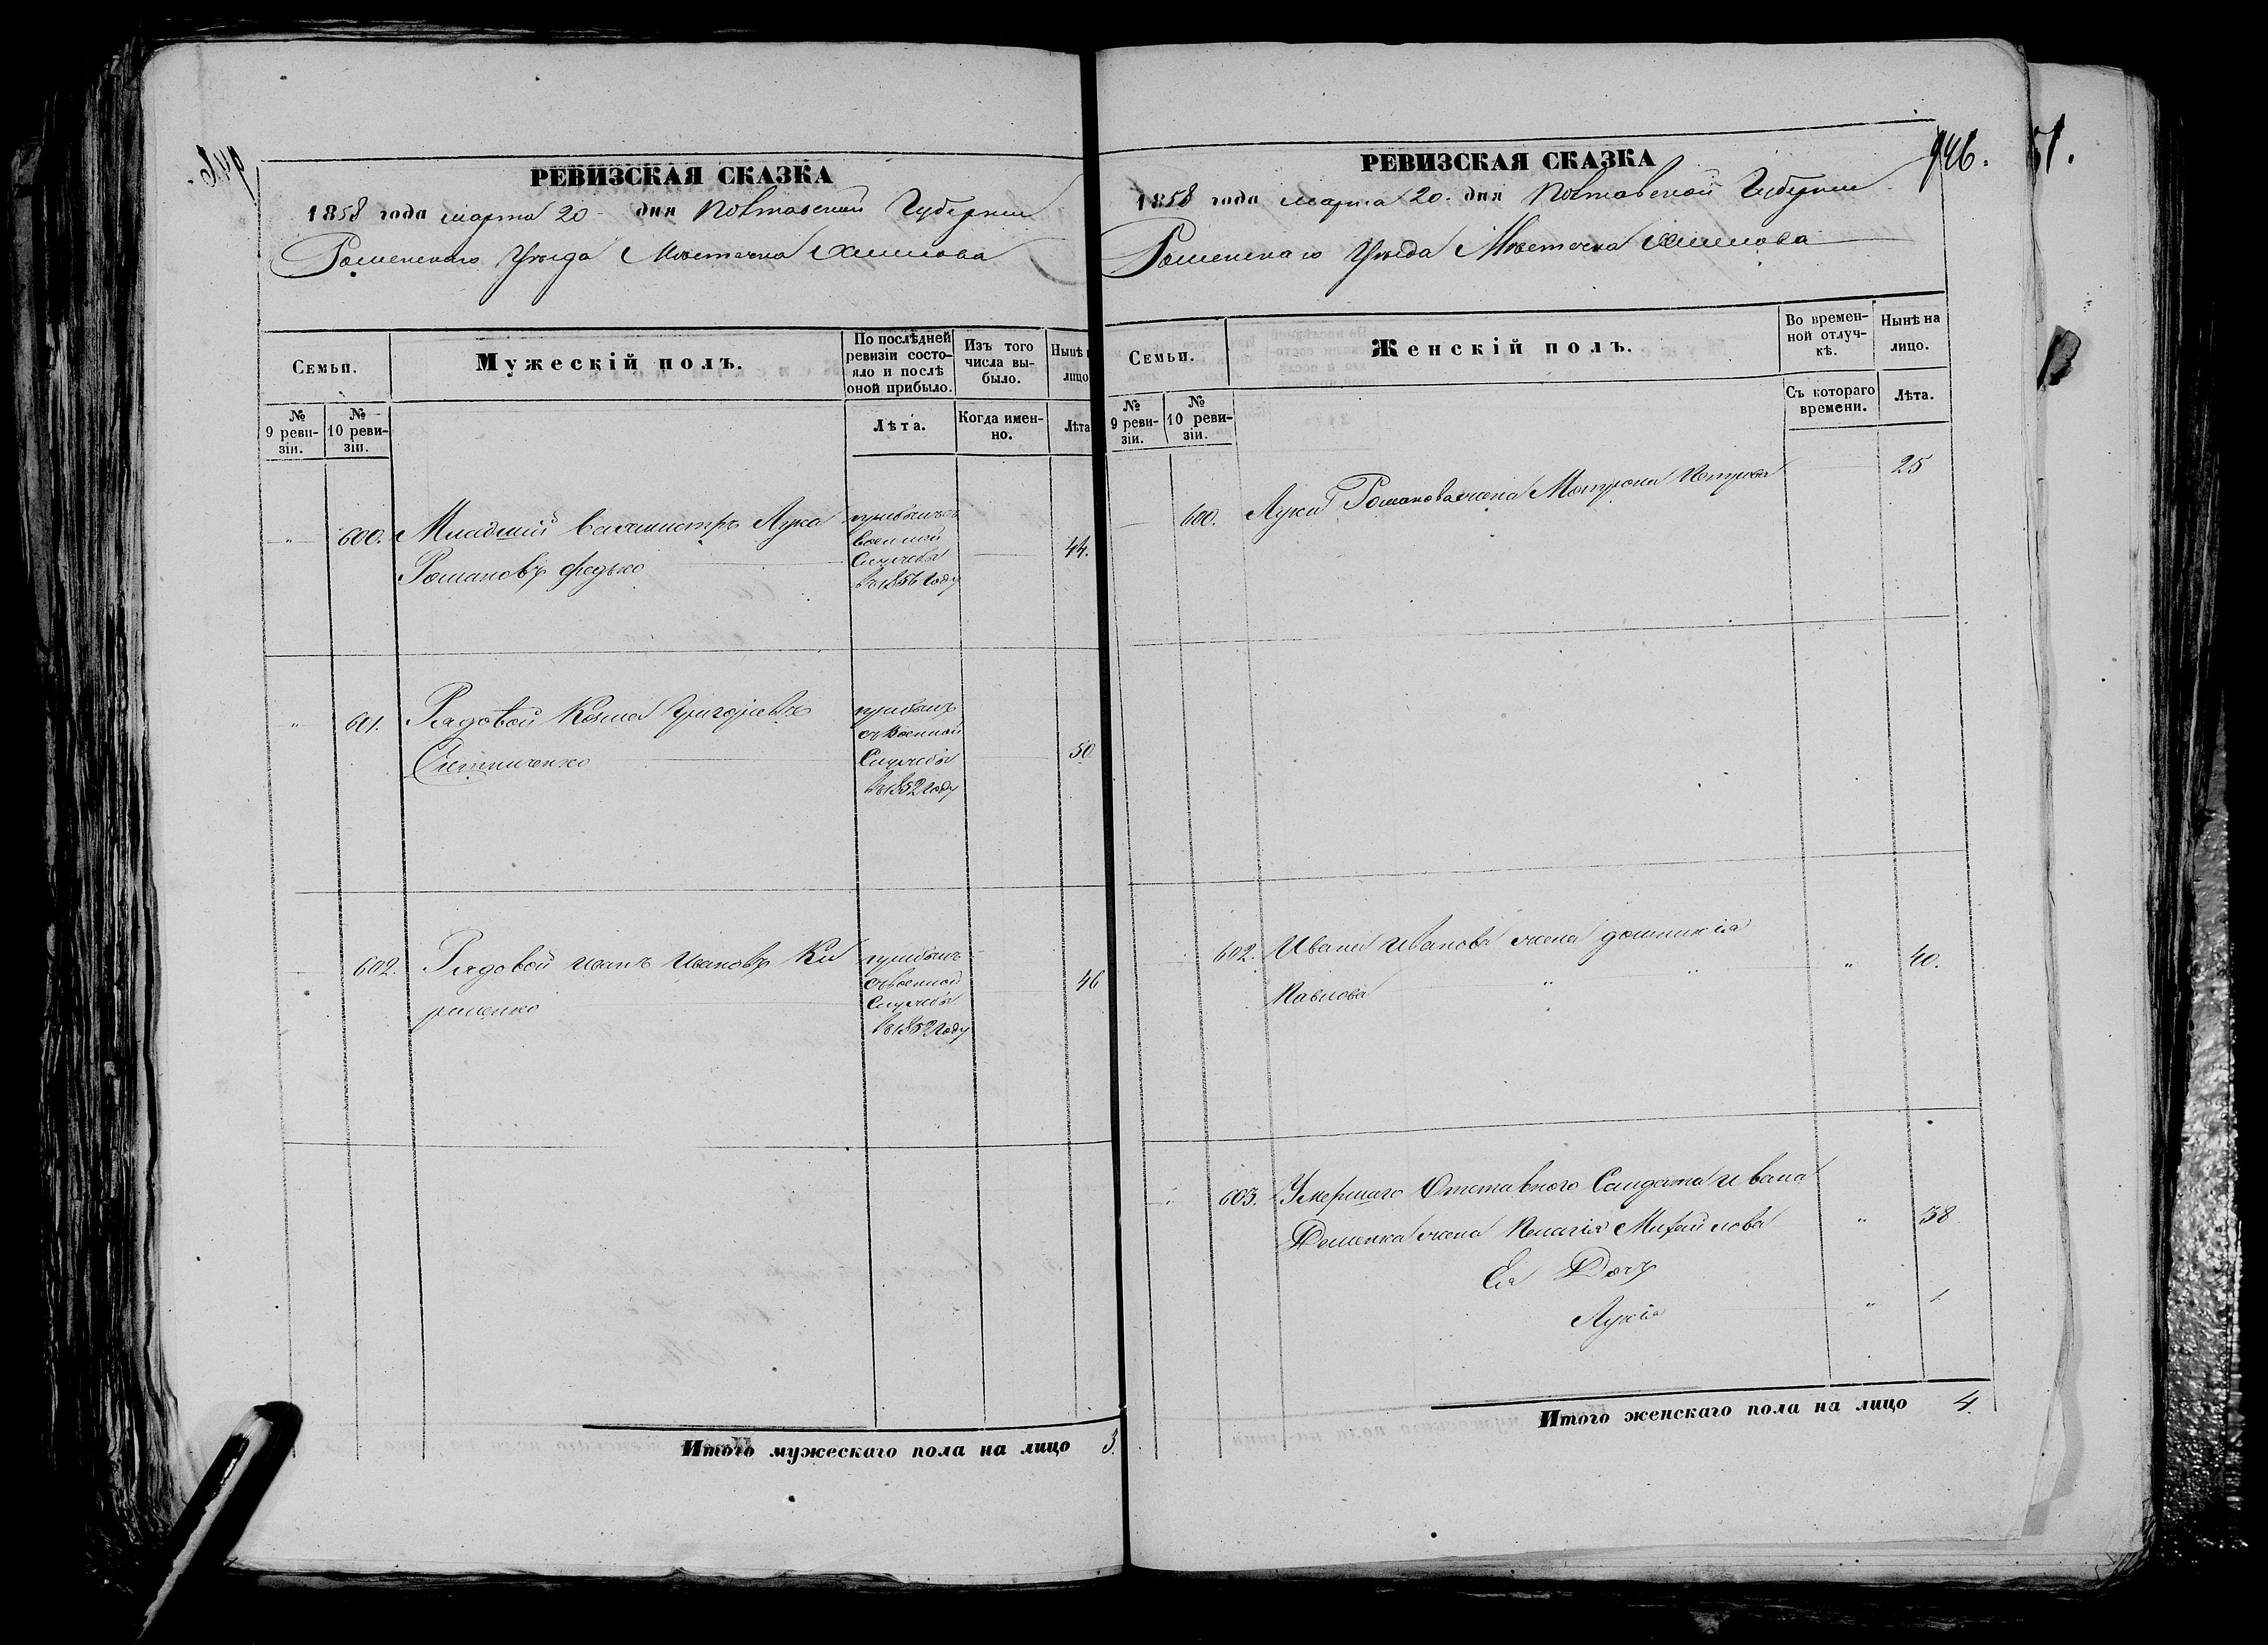 РЕВИЗСКАЯ СКАЗКА
1858 года марта 20 дня Полтавской Губерніи
Роменскаго Уезда Местечка Хмелова
Семьи.
Мужескій полъ.
По послѣдней ревизіи состояло и послѣ оной прибыло.
Изъ того числа выбыло.
Нынѣ
лицо
№ 9 ревизіи.
№ 10 ревизіи.
Лѣта.
Когда именно.
Лѣта
600. Младшій Вахмистръ Лука
Романовъ Федько
прибылъ съ
военной
Службы
въ 1856 году
44.
601. Рядовой Козма Григорьевъ
прибылъ
съ военной
Службы
въ 1852 году
50
602. Рядовой иванъ Ивановъ Ки
риленко
прибылъ
съ военной
Службы
въ 1852 году
46
Итого мужескаго пола на лицо 3.
946.
РЕВИЗСКАЯ СКАЗКА
1858 года марта 20. дня Полтавской Губерніи
Роменскаго Уезда Местечка Хмелова
Семьи.
Женскій полъ.
Во временной отлучкѣ.
Нынѣ на лицо.
№ 9 ревизіи.
№ 10 ревизіи.
Съ котораго времени.
Лѣта.
600. Луки Романова жена Мотрона Петрова 25
602. Ивана Иванова жена домникія
Павлова 40.
603. Умершаго Отставного Салдата Ивана
Деменка жена Пелагія Михайлова 38
Ея Дочь
Лукія 1
Итого женскаго пола на лицо 4.
51.